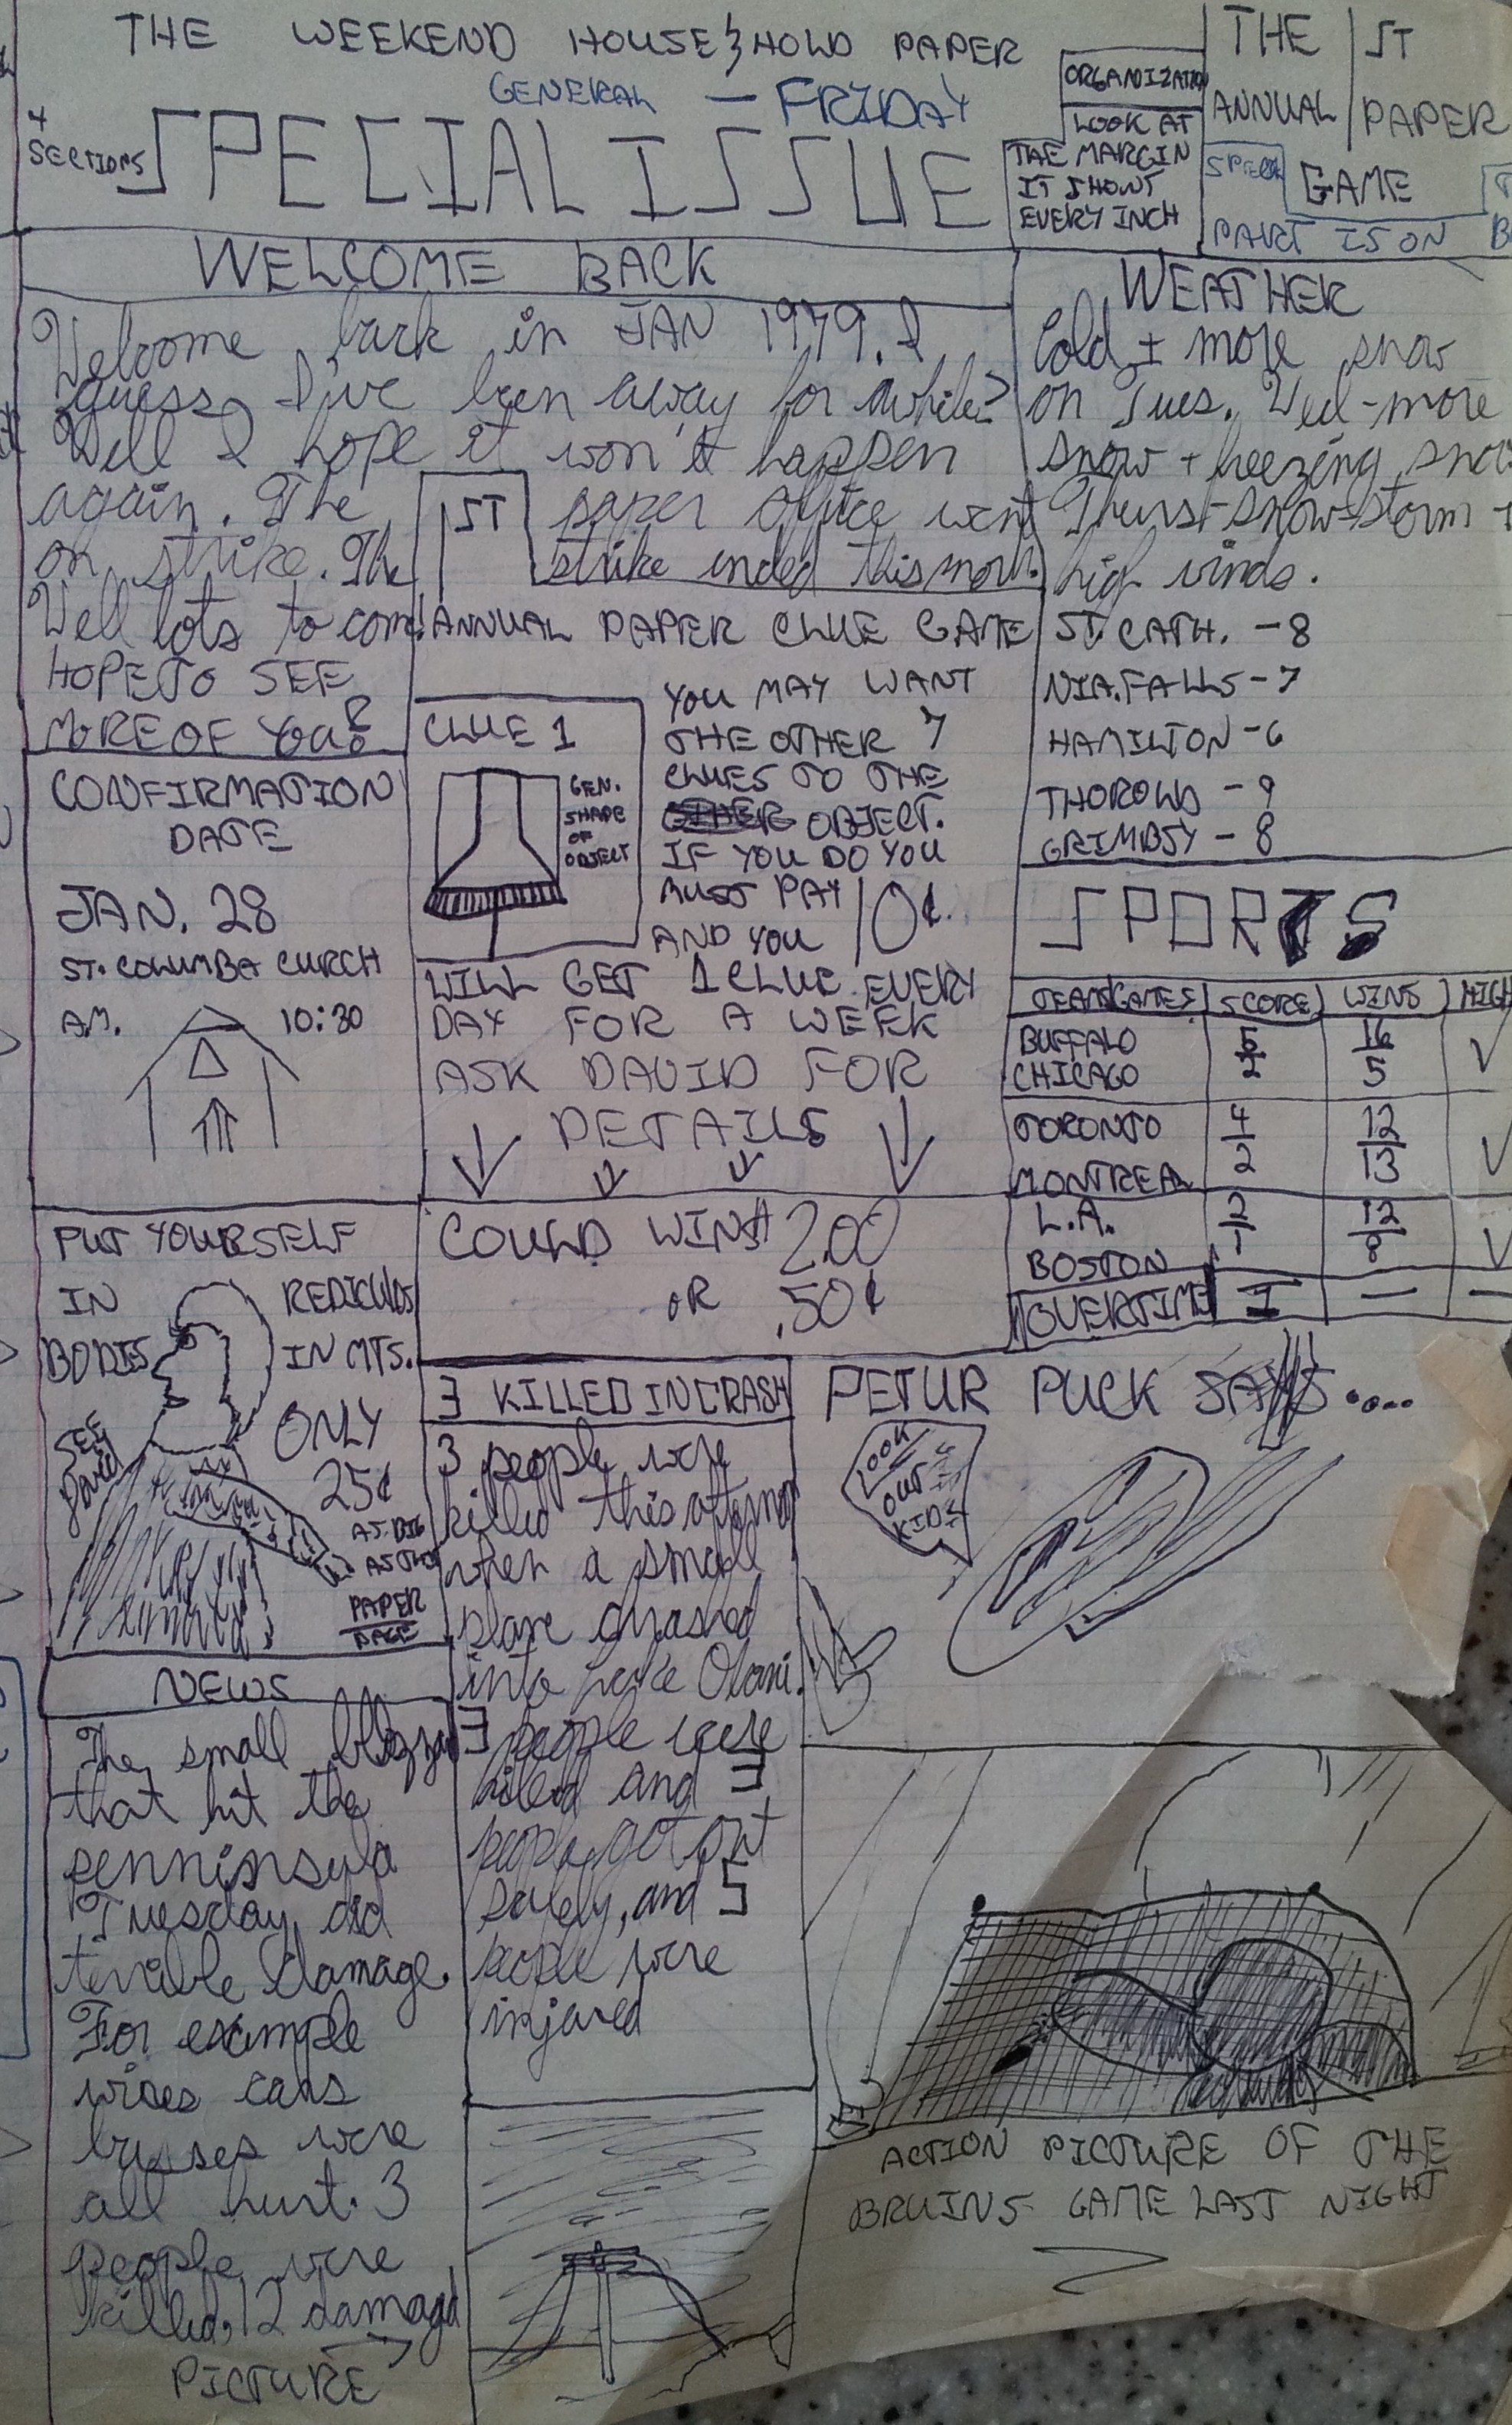 THE WEEKEND HOUSE & HOLD PAPER
GENERAL — FRIDAY
4
SECTIONS
SPECIAL ISSUE
ORGANIZATION
LOOK AT
THE MARGIN
IT SHOWS
EVERY INCH
THE 1ST
ANNUAL PAPER
SPECIAL GAME
PART IS ON
WELCOME BACK
Welcome back in JAN 1979. I
guess I've been away for awhile?
Well I hope it won't happen
again. The paper office went
on strike. The strike ended this morn.
Well lots to come!
HOPE TO SEE
MORE OF YOU
WEATHER
Cold + more snow
on Tues. Wed - more
snow + freezing snow
Thurs - snow-storm +
high winds.
ST. CATH. - 8
NIA. FALLS - 7
HAMILTON - 6
THOROLD - 9
GRIMBSY - 8
1ST
ANNUAL PAPER CLUE GAME
CLUE 1
GEN.
SHAPE
OF
OBJECT
YOU MAY WANT
THE OTHER 7
CLUES TO THE
OBJECT.
IF YOU DO YOU
MUST PAY 10¢.
AND YOU
WILL GET 1 CLUE EVERY
DAY FOR A WEEK
ASK DAVID FOR
DETAILS
COULD WIN $2.00
OR .50¢
CONFIRMATION
DATE
JAN. 28
ST. COLUMBA CURCH
AM. 10:30
SPORTS
TEAMS GAMES SCORE WINS HIGH
BUFFALO 5 16
CHICAGO 2 5
TORONTO 4 12
MONTREAL 2 13
L.A. 2 12
BOSTON 1 8
OVERTIME 1 — —
PUT YOURSELF
IN REDICULOS
BODIES IN MTS.
ONLY
25¢
SEE
David
AS BIG
AS THE
PAPER
PAGE
3 KILLED IN CRASH
3 people were
killed this afternoon
when a small
plane crashed
into Lake
3 people were
killed and 3
people got out
safely, and 5
people were
injured
PETUR PUCK SAYS.....
LOOK
OUT
KIDS
NEWS
The small blizzard
that hit the
penninsula
Tuesday did
terrible damage.
For example
wires cars
busses were
all hurt. 3
people were
killed, 12 damagd
PICTURE
ACTION PICTURE OF THE
BRUINS GAME LAST NIGHT